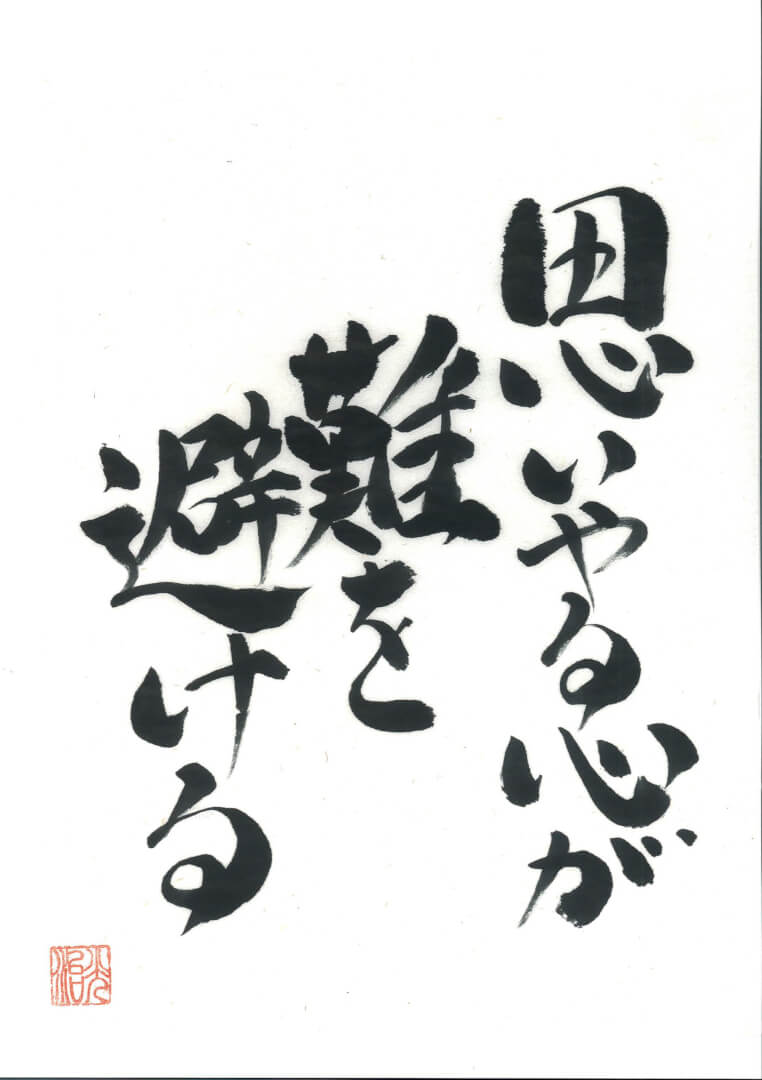 思いやる心が
難を
避ける